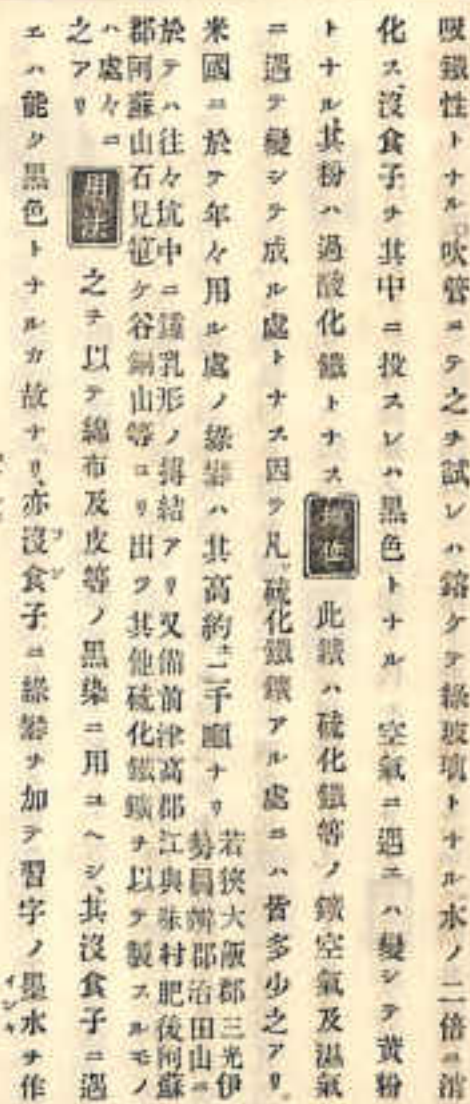 吸鐵性トナル吹管ニテ之ヲ試レハ鎔ケテ綠玻璃トナル水ノ二倍ニ消
化ス、沒食子ヲ其中ニ投スレハ黒色トナル 空氣ニ遇エハ變シテ黄粉
トナル其粉ハ過酸化鐵トナス 此鑛ハ硫化鐵等ノ鑛空氣及濕氣
ニ遇テ變シテ成ル處トナス因テ凡硫化鐵鑛アル處ニハ皆多少之アリ
米國ニ於テ年々用ル處ノ綠礬ハ其高約二千噸ナリ 若狹大飯郡三光伊
勢員辨郡治田山ニ
於テハ往々坑中ニ鍾乳形ノ搆結アリ又備前津高郡江與味村肥後阿蘇
郡阿蘇山石見笹ケ谷銅山等ヨリ出ツ其他硫化鐵鑛ヲ以テ製スルモノ
ハ處々ニ
之アリ 用法 之ヲ以テ綿布及皮等ノ黒染ニ用ユヘシ、其沒食子ニ遇
エハ能ク黒色トナルカ故ナリ、亦沒食子ニ綠礬ヲ加テ習字ノ墨水ヲ作